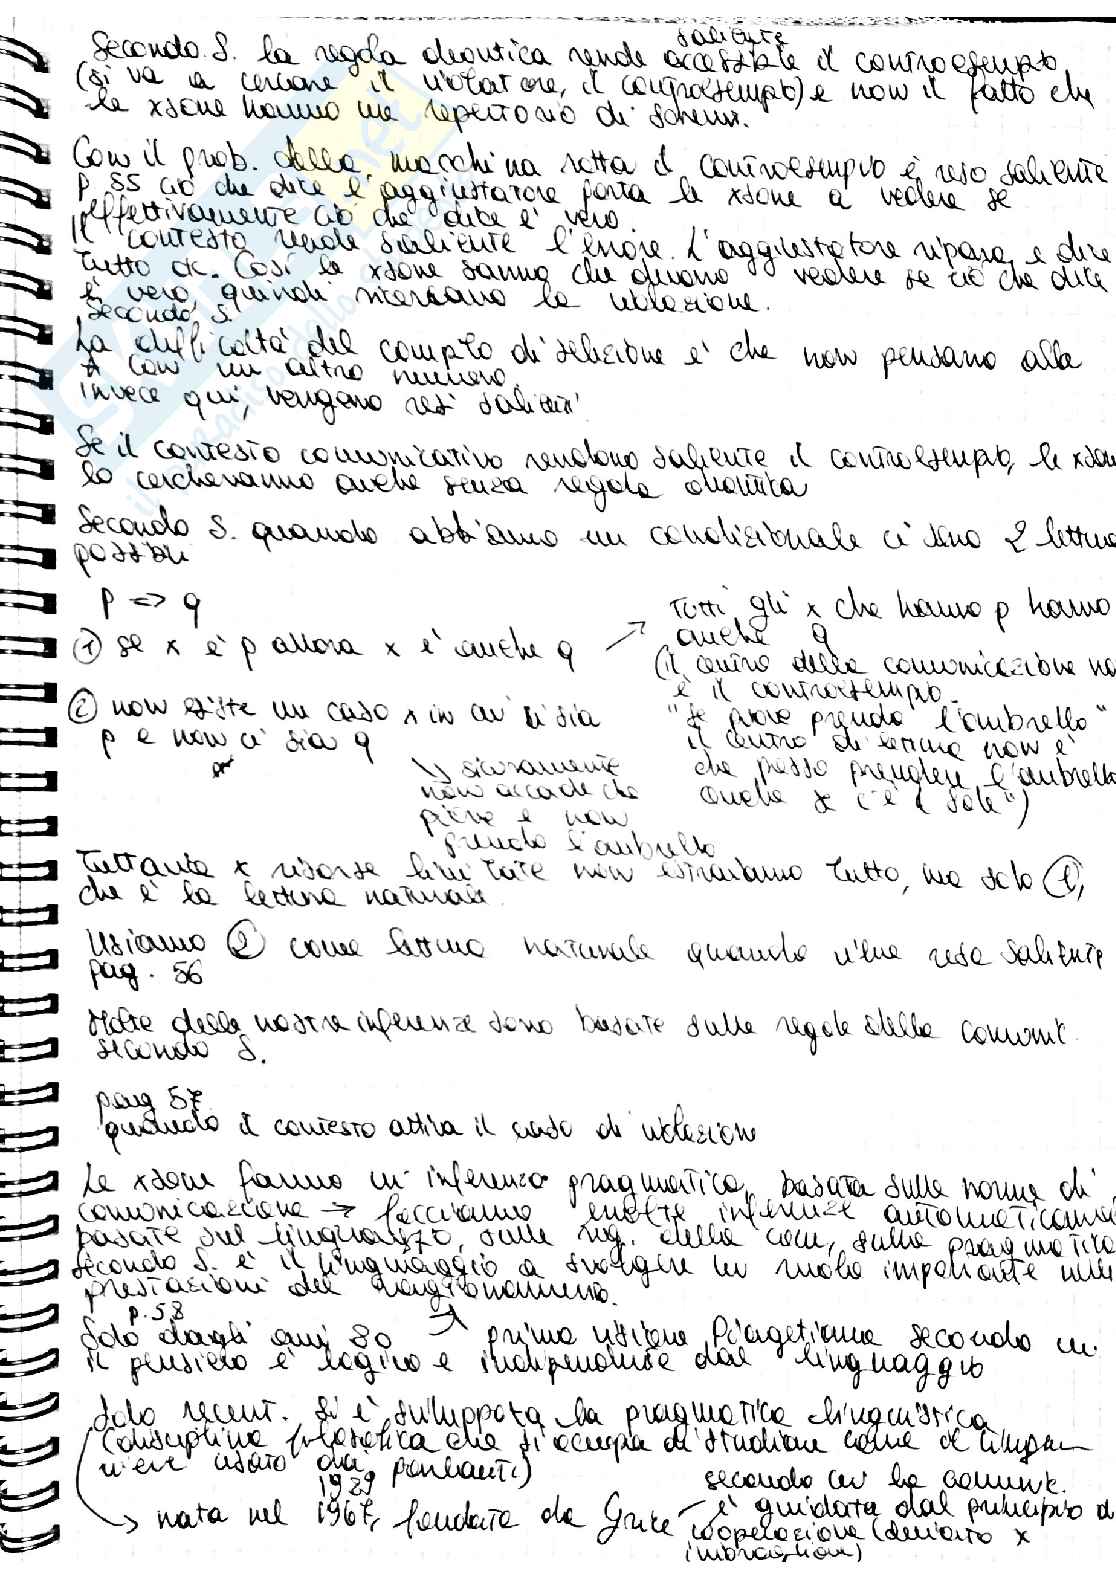 saliente
Secondo S. la regola deontica rende accessibile il controesempio
(si va a cercare il violatore, il controesempio) e non il fatto che
le xsone hanno un repertorio di schemi.
Con il prob. della macchina rotta il controesempio è reso saliente
p 55 ciò che dice l'aggiustatore porta le xsone a vedere se
effettivamente ciò che dice è vero.
Il contesto rende saliente l'errore. L'aggiustatore ripara e dice
tutto ok. Così le xsone sanno che devono vedere se ciò che dice
è vero, quindi ricercano la violazione.
Secondo S.
La difficoltà del compito di selezione è che non pensano alla
A con un altro numero.
invece qui, vengono resi salienti
Se il contesto comunicativo rendono saliente il controesempio, le xson
lo cercheranno anche senza regola deontica
Secondo S. quando abbiamo un condizionale ci sono 2 letture
possibili
p => q
① se x è p allora x è anche q
Tutti gli x che hanno p hanno
anche q
(il centro della comunicazione no
è il controesempio.
"se piove prendo l'ombrello"
il centro di lettura non è
che posso prendere l'ombrello
anche se c'è il sole")
② non esiste un caso x in cui ci sia
p e non ci sia q
sicuramente
non accade che
piove e non
prendo l'ombrello
Tuttavia x risorse limitate non estraiamo tutto, ma solo ①,
che è la lettura naturale.
Usiamo ② come lettura naturale quando viene resa saliente
pag. 56
Molte delle nostre inferenze sono basate sulle regole della comunic.
secondo S.
pag 57
quando il contesto attiva il caso di violazione
Le xsone fanno un'inferenza pragmatica, basata sulle norme di
comunicazione → facciamo inferenze automaticamen
basate sul linguaggio, sulle reg. della com, sulla pragmatica
Secondo S. è il linguaggio a svolgere un ruolo importante nelle
prestazioni del ragionamento.
p. 58
Solo dagli anni 80 prima visione Piagetiana secondo cui
il pensiero è logico e indipendente dal linguaggio
Solo recent. si è sviluppata la pragmatica linguistica
(disciplina filosofica che si occupa di studiare come il lingua
viene usato dai parlanti)
1929
→ nata nel 1967, fondata da Grice
secondo cui la comunic.
è guidata dal principio di
cooperazione (deviato x
imbrogliare)